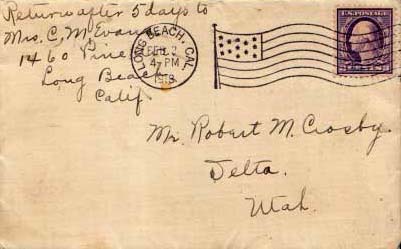 Return after 5 days to
Mrs. C. M. Evans
1460 Pine
Long Beach
Calif
LONG BEACH, CAL.
4-PM
U.S. POSTAGE
Mr. Robert M. Crosby.
Delta.
Utah.